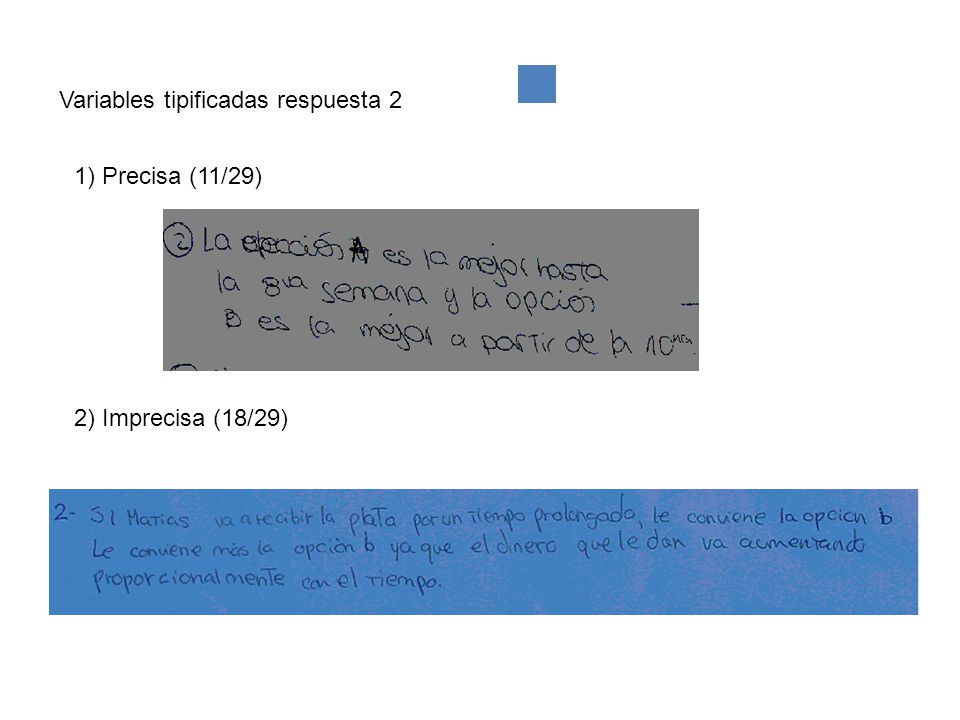 Variables tipificadas respuesta 2
1) Precisa (11/29)
2 La opcción A es la mejor hasta
la 8va semana y la opción
B es la mejor a partir de la 10ma.
2) Imprecisa (18/29)
2- Si Matias va a recibir la plata por un tiempo prolongado, le conviene la opcion b
Le conviene màs la opciòn b ya que el dinero que le dan va aumentando
proporcionalmente con el tiempo.